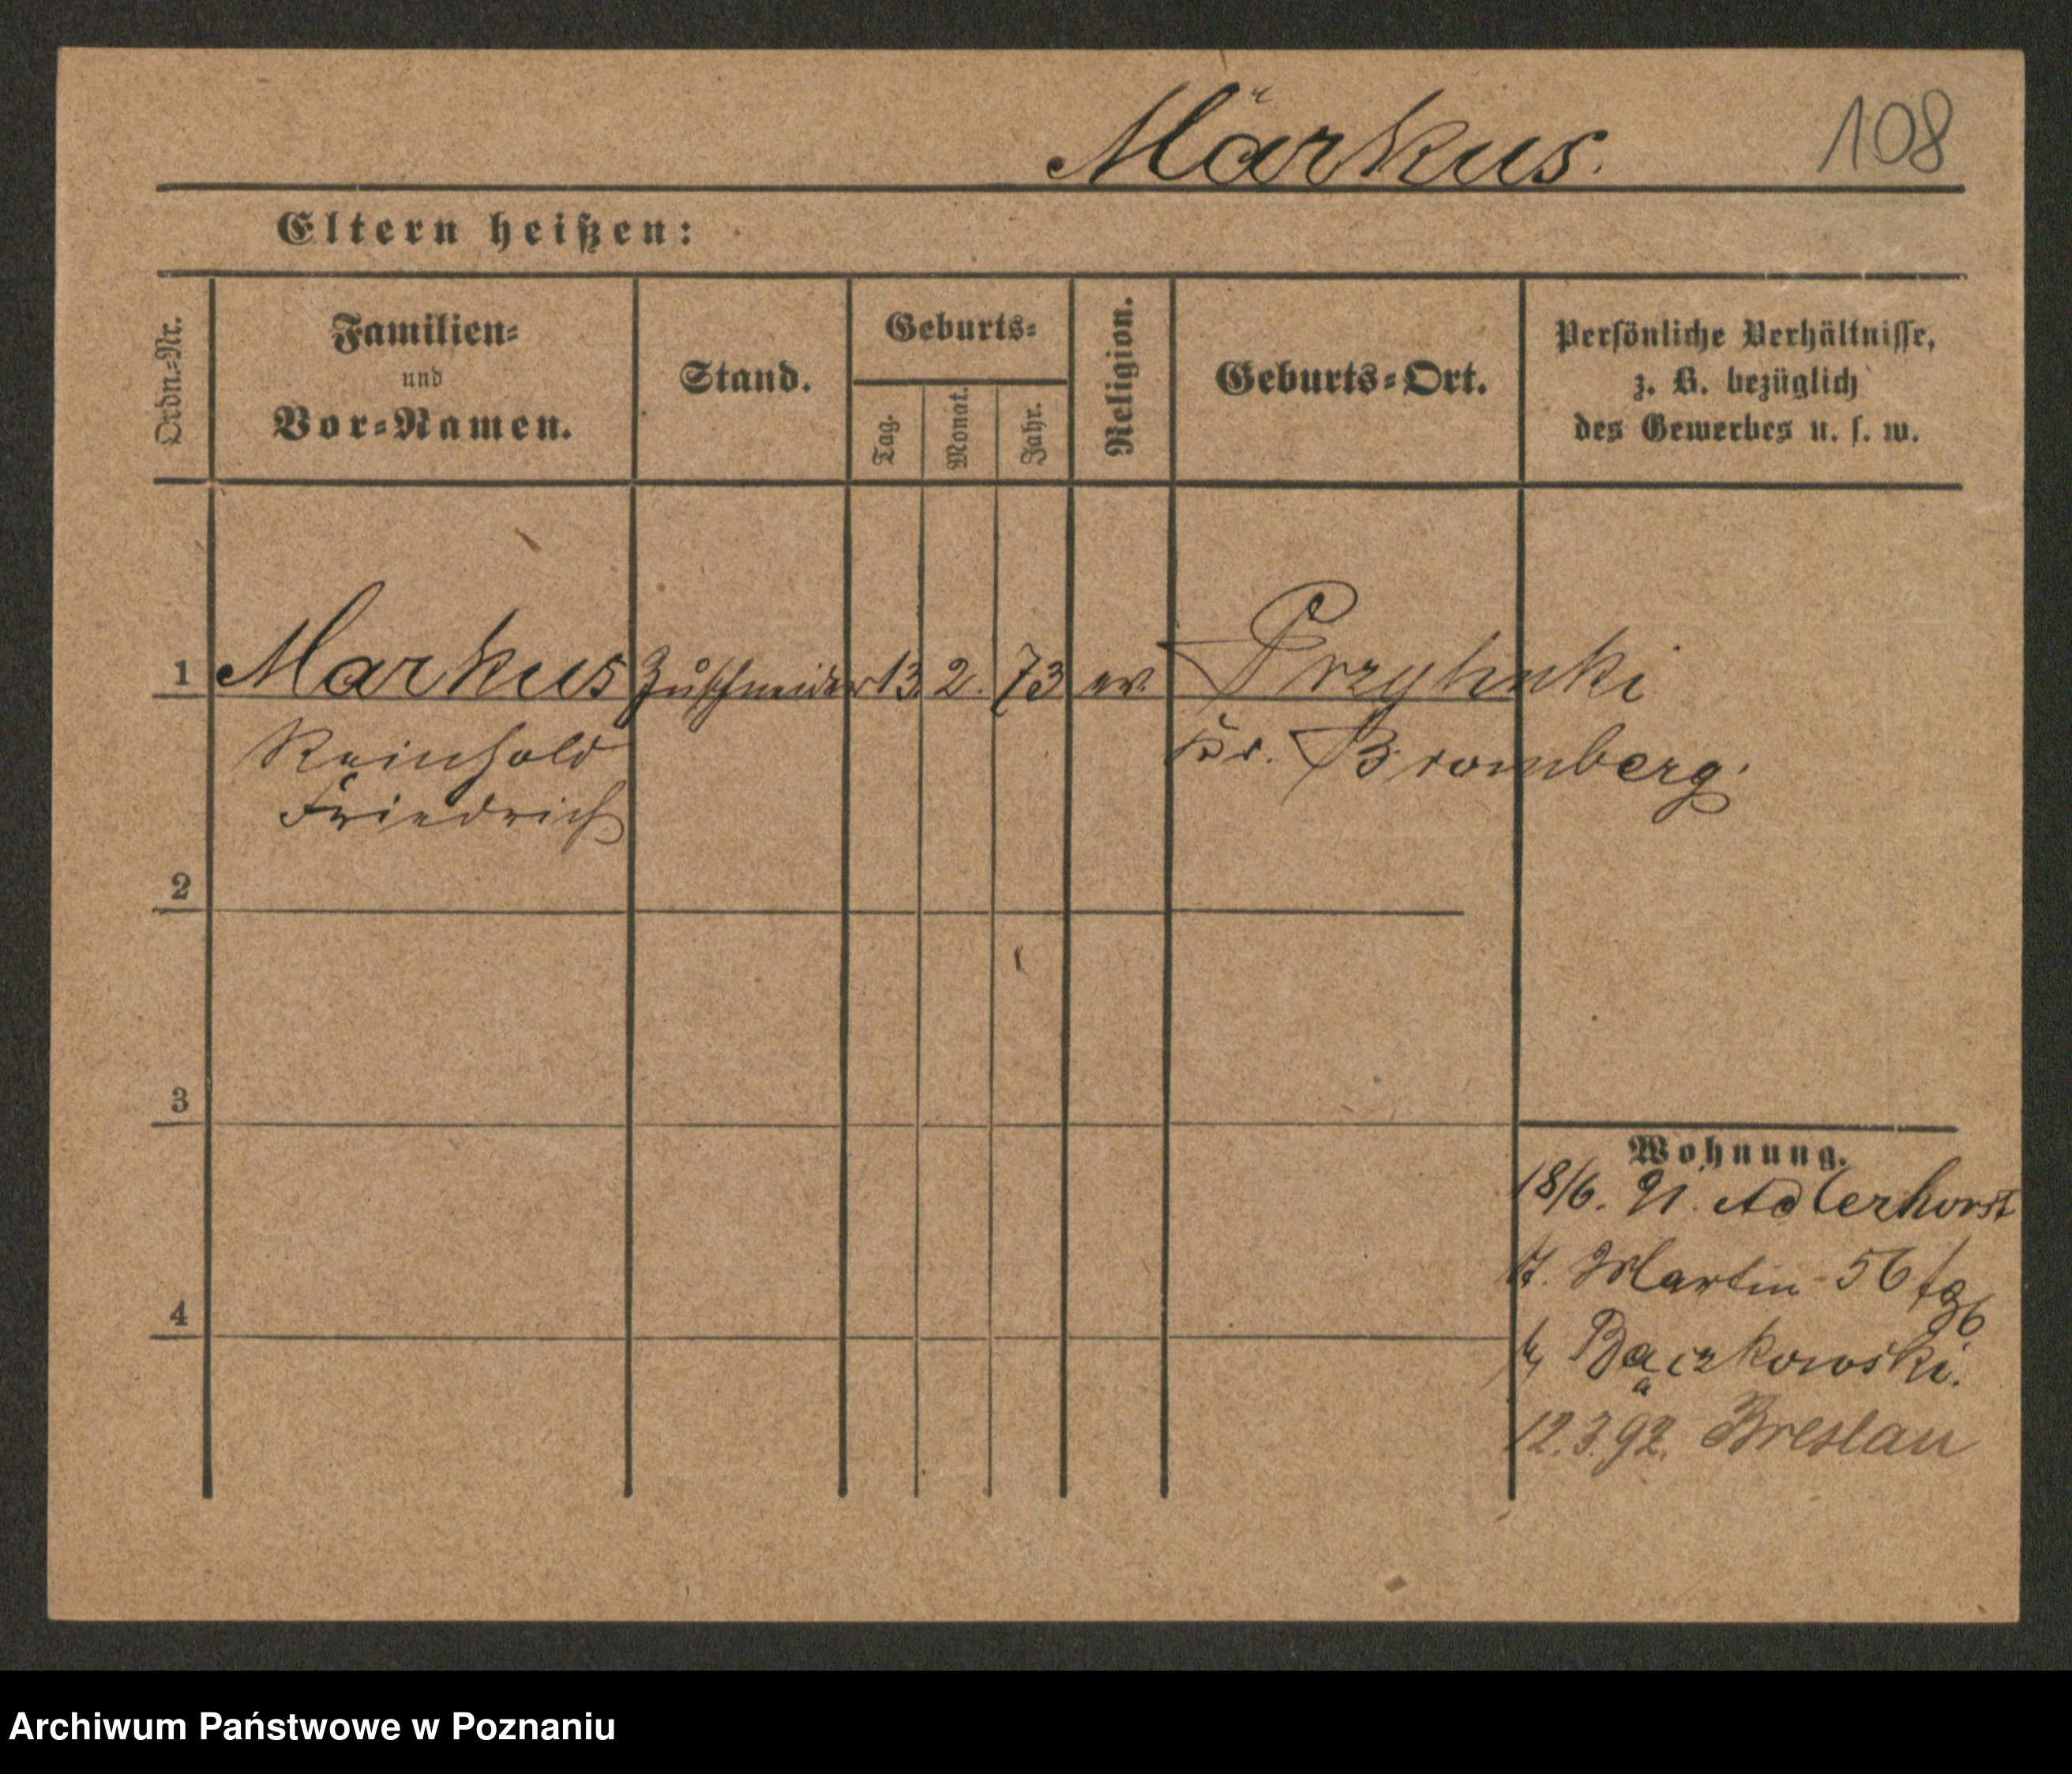 Märkus. 108
Eltern heißen:
Ordn.-Nr. Familien- und Vor-Namen. Stand. Geburts- Tag. Monat. Jahr. Religion. Geburts-Ort. Persönliche Verhältnisse, z. B. bezüglich des Gewerbes u. s. w.
1 Markus Zuschneider 13 2. 73 ev.
Reinhold Kr. Bromberg.
Friedrich
2
3
Wohnung.
18/6. 91. Adlerhorst
Martin 56
4
Bączkowski.
a
12.3.92. Breslau
Archiwum Państwowe w Poznaniu